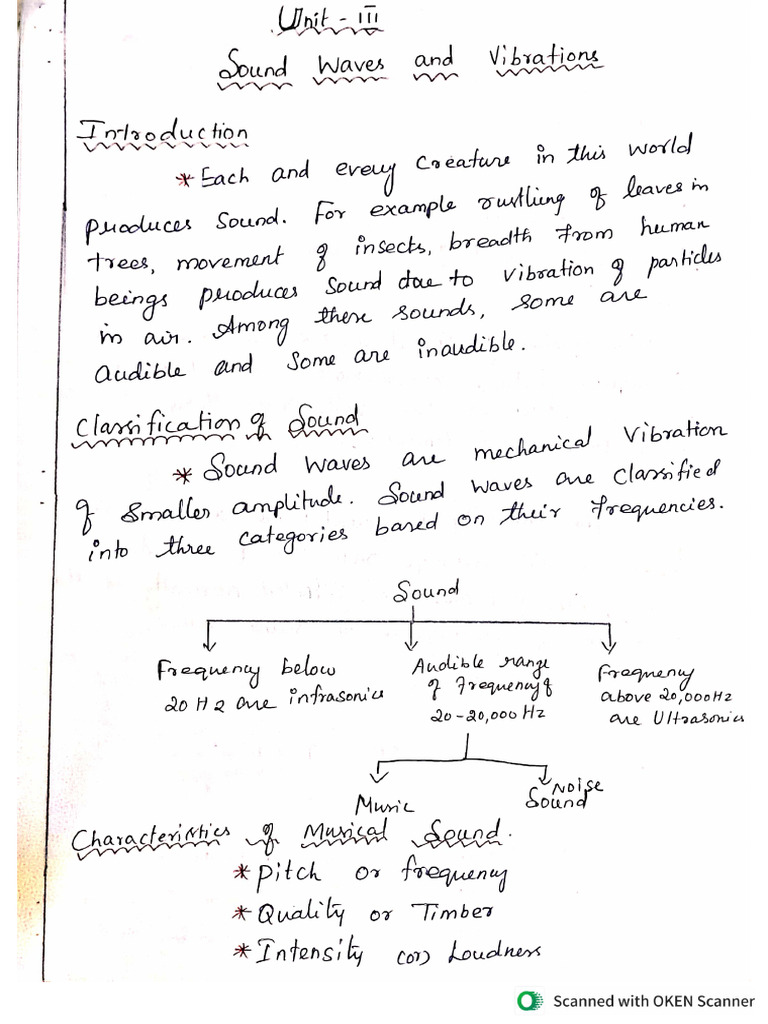 Unit - III
Sound Waves and Vibrations
Introduction
* Each and every creature in this world
produces sound. For example rustling of leaves in
trees, movement of insects, breadth from human
beings produces sound due to vibration of particles
in air. Among these sounds, some are
audible and some are inaudible.
Classification of Sound
* Sound waves are mechanical vibration
of smaller amplitude. Sound waves are classified
into three categories based on their frequencies.
Sound
Frequency below
20 Hz are infrasonics
Audible range
of frequency of
20-20,000 Hz
Frequency
above 20,000Hz
are Ultrasonics
Music
Noise
Sound
Characteristics of Musical Sound.
* Pitch or frequency
* Quality or Timber
* Intensity (or) Loudness
Scanned with OKEN Scanner